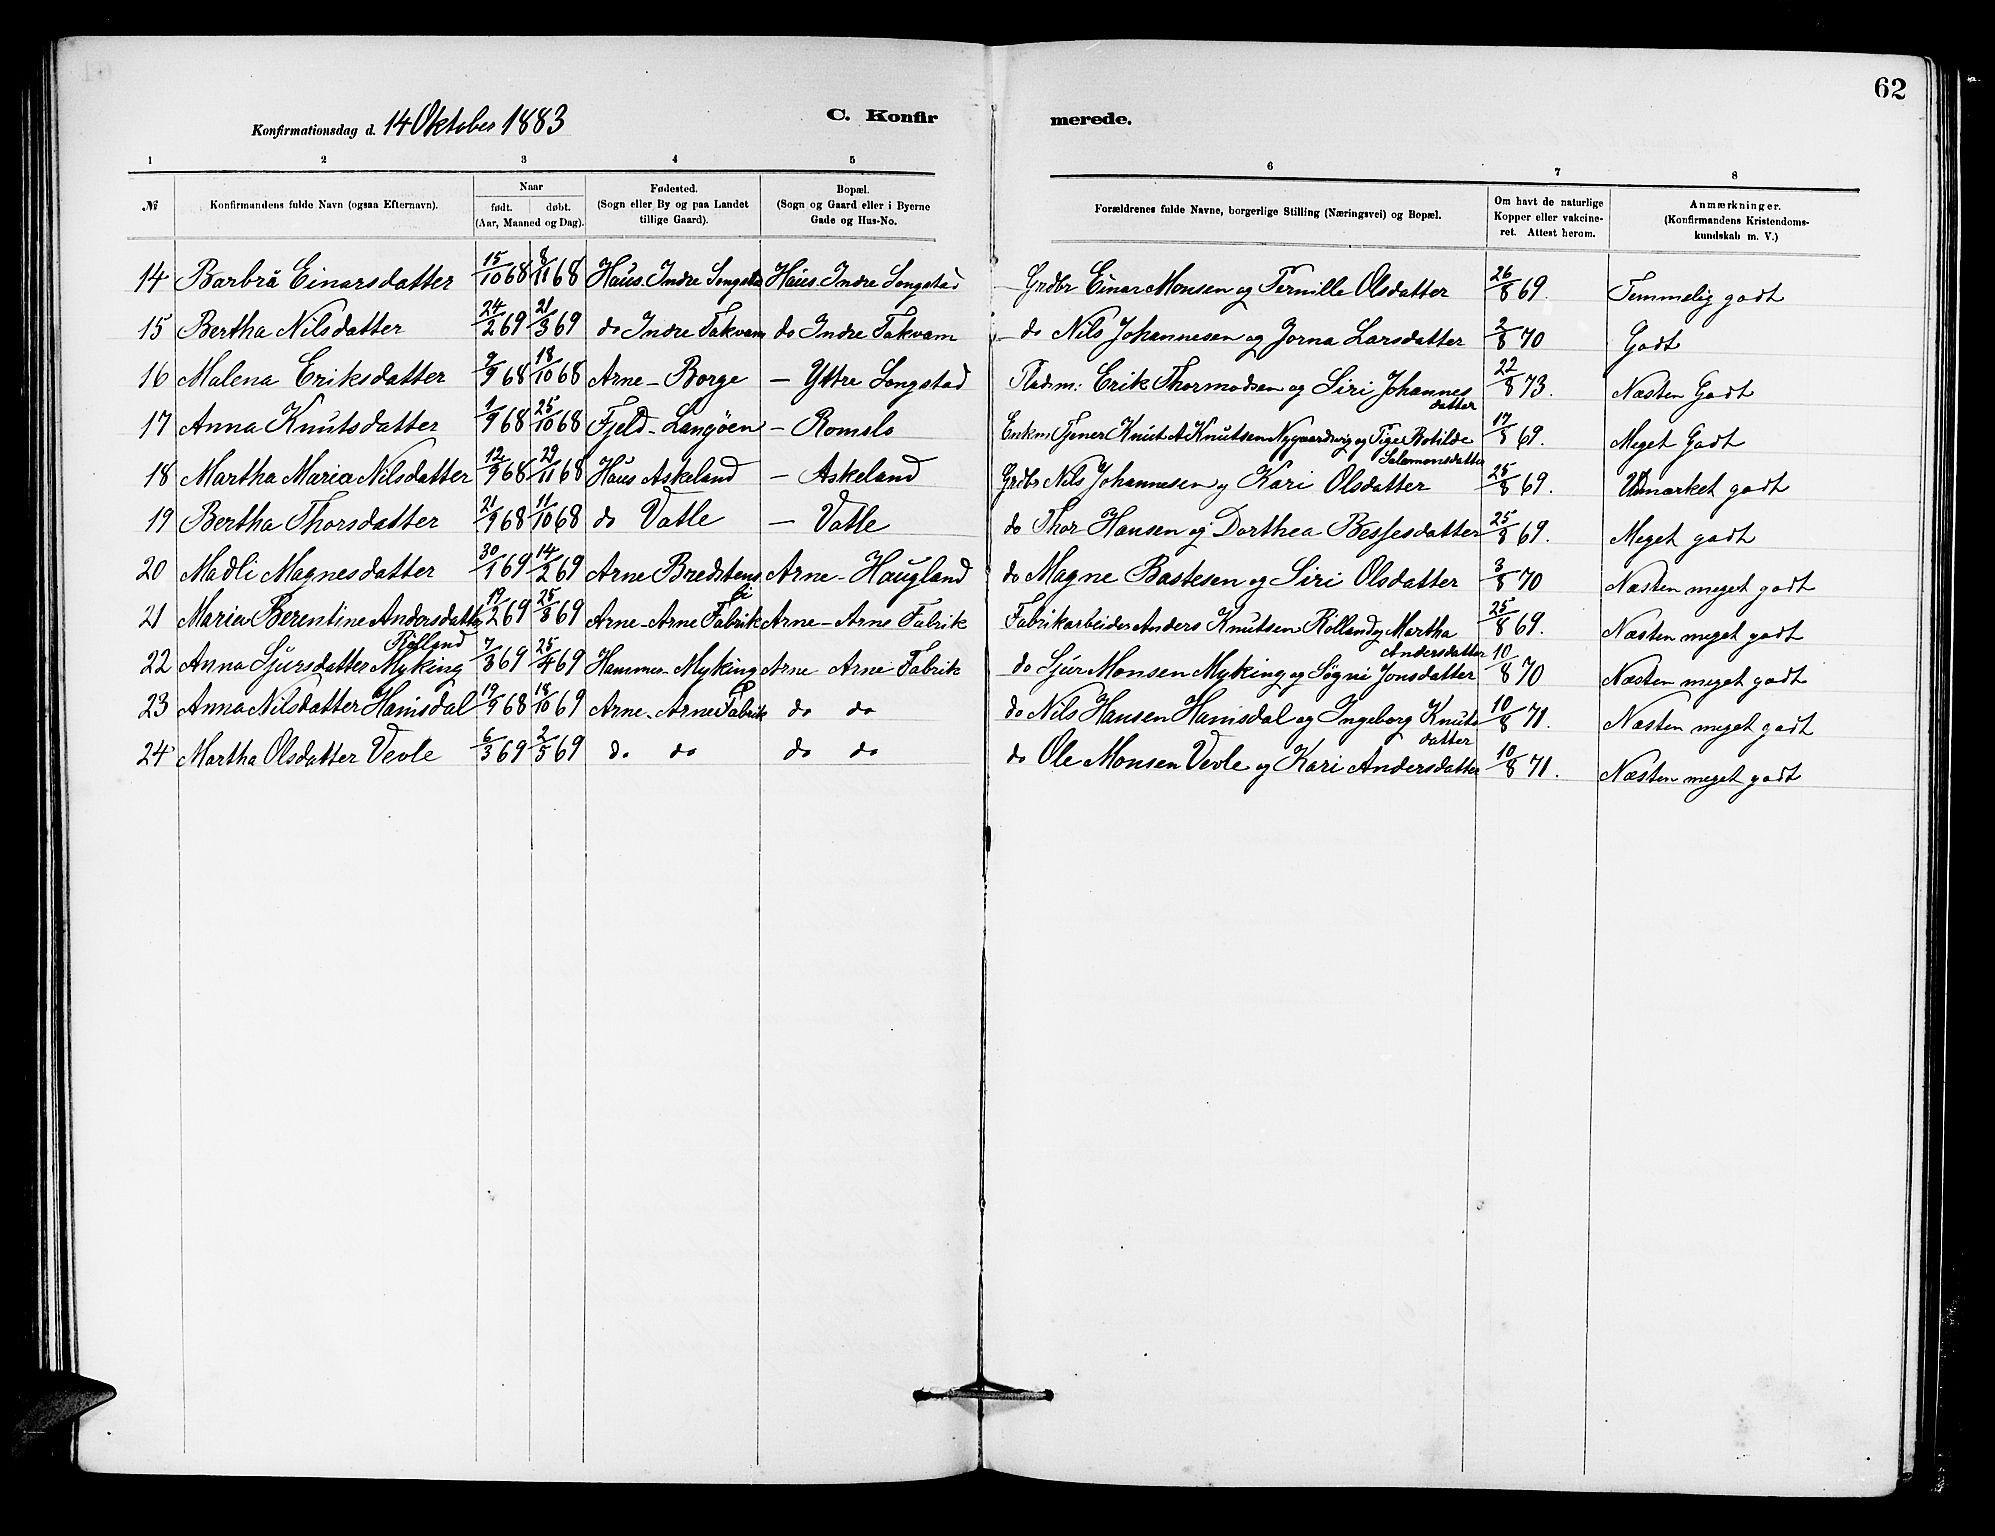 62
Konfirmationsdag d. 14 Oktober 1883
C. Konfirmerede.
1 2 3 4 5 6 7 8
№ Konfirmandens fulde Navn (ogsaa Efternavn). Naar født. døbt. (Aar, Maaned og Dag). Fødested. (Sogn eller By og paa Landet tillige Gaard). Bopæl. (Sogn og Gaard eller i Byerne Gade og Hus-No. Forældrenes fulde Navne, borgerlige Stilling (Næringsvei) og Bopæl. Om havt de naturlige Kopper eller vakcineret. Attest herom. Anmærkninger. (Konfirmandens Kristendomskundskab m. V.)
14 Barbrå Einarsdatter 15/10 68 8/11 68 Haus. Indre Songstad Haus. Indre Songstad Grdbr Einar Monsen og Pernille Olsdatter 26/8 69. Temmelig godt
15 Bertha Nilsdatter 24/2 69 21/3 69 do Indre Takvam do Indre Takvam do Nils Johannesen og Jorna Larsdatter 2/8 70 Godt
16 Malena Eriksdatter 9/9 68 18/10 68 Arne - Borge - Yttre Songstad Pladsm: Erik Thormodsen og Siri Johannesdatter 22/8 73. Næsten Godt
17 Anna Knutsdatter 1/9 68 25/10 68 Fjeld - Langøen - Romslo Enkm Tjener Knut A Knutsen Nygaardsvig og Pige Botilde Salamonsdatter 17/8 69. Meget Godt
18 Martha Maria Nilsdatter 12/9 68 29/11 68 Haus Askeland - Askeland Grdbr Nils Johannesen og Kari Olsdatter 25/8 69. Udmærket godt
19 Bertha Thorsdatter 21/9 68 11/10 68 do Vatle - Vatle do Thor Hansen og Dorthea Bessesdatter 25/8 69. Meget godt
20 Madli Magnesdatter 30/1 69 14/2 69 Arne Bredstens li Arne - Haugland do Magne Bastesen og Siri Olsdatter 3/8 70 Næsten meget godt
21 Maria Berentine Andersdatter Rølland 19/2 69 25/3 69 Arne - Arne Fabrik Arne - Arne Fabrik Fabrikarbeider Anders Knutsen Rolland og Martha Andersdatter 25/8 69. Næsten meget godt
22 Anna Sjursdatter Myking 7/3 69 25/4 69 Hammer - Myking Arne Arne Fabrik do Sjur Monsen Myking og Søgni Jonsdatter 10/8 70 Næsten meget godt
23 Anna Nilsdatter Hamsdal 19/9 68 18/10 69 Arne - Arne Fabrik do do do Nils Hansen Hamsdal og Ingeborg Knutsdatter 10/8 71. Næsten meget godt
24 Martha Olsdatter Vevle 6/3 69 2/5 69 do do do do do Ole Monsen Vevle og Kari Andersdatter 10/8 71. Næsten meget godt